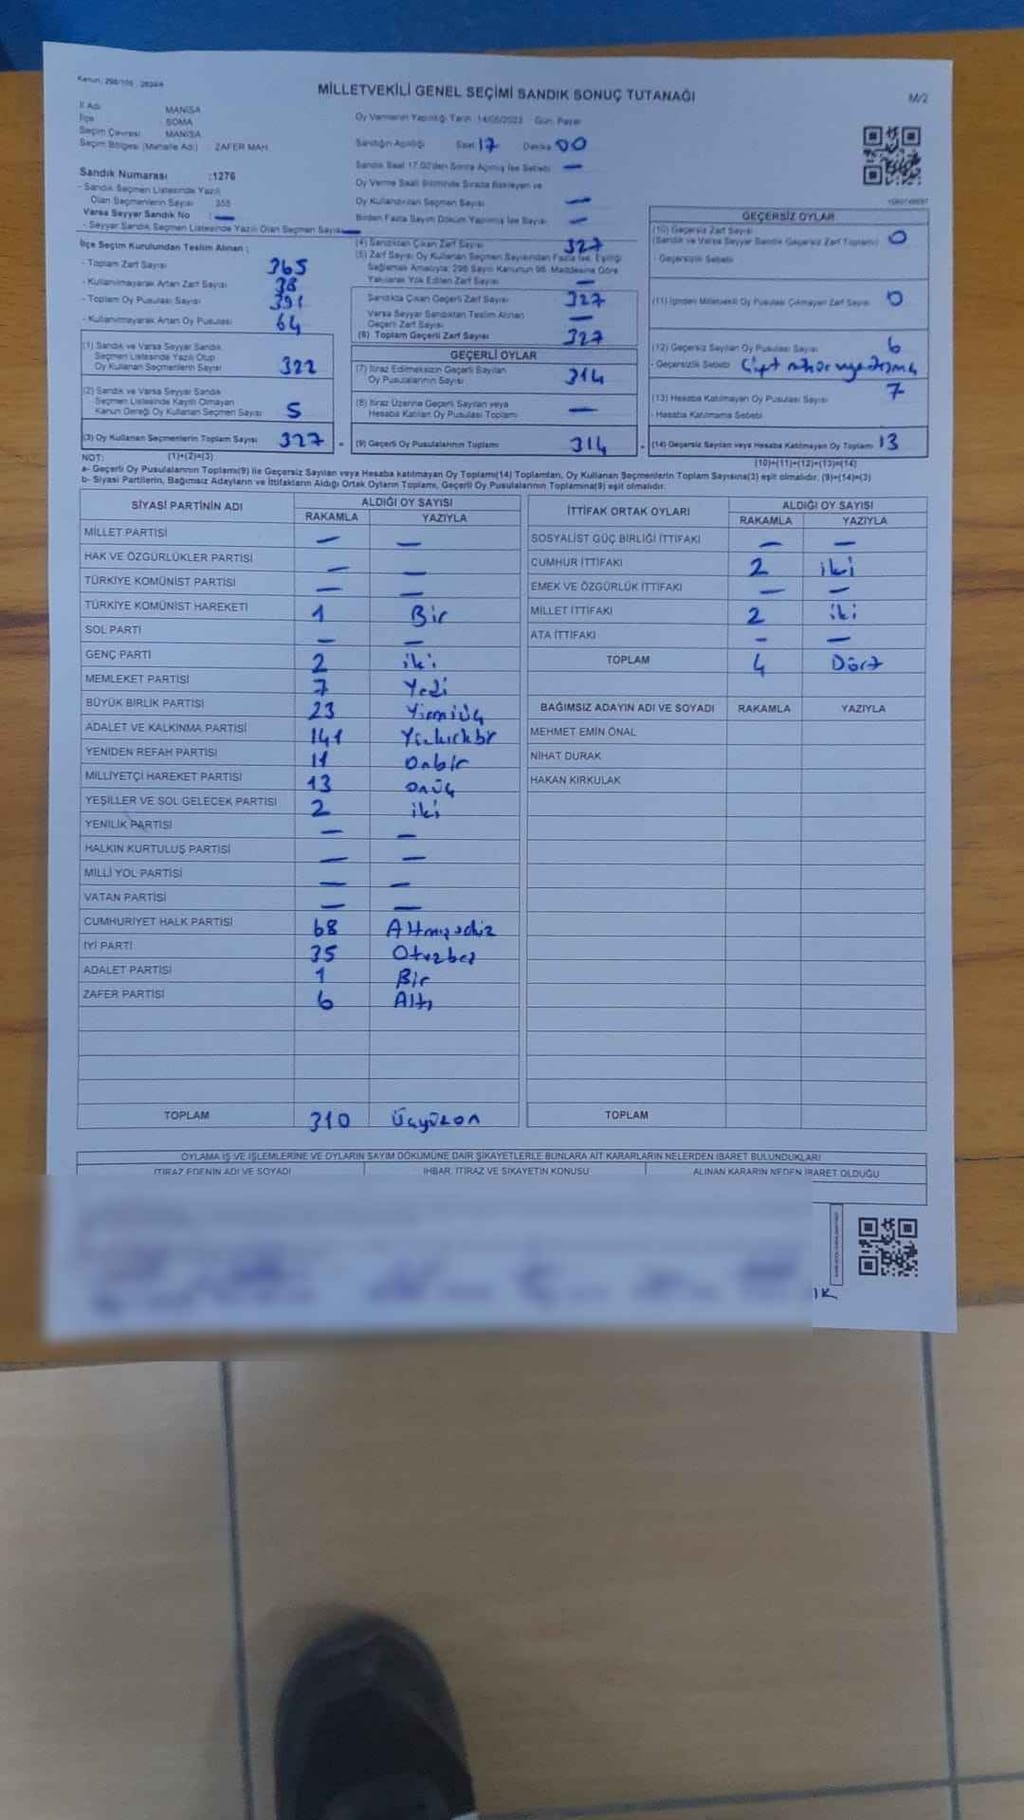 MİLLETVEKİLİ GENEL SEÇİMİ SANDIK SONUÇ TUTANAĞI
M/2
İl Adı MANİSA
İlçe SOMA
Seçim Çevresi MANİSA
Seçim Bölgesi (Mahalle Adı) ZAFER MAH.
Oy Vermenin Yapıldığı Tarih 14/05/2023 Gün: Pazar
Sandığın Açıldığı Saat 17 Dakika 00
Sandık Saat 17.00'den Sonra Açılmış İse Sebebi —
Oy Verme Saati Bitiminde Sırada Bekleyen ve
Oy Kullandırılan Seçmen Sayısı —
Birden Fazla Sayım Döküm Yapılmış İse Sayısı —
Sandık Numarası :1276
- Sandık Seçmen Listesinde Yazılı
Olan Seçmenlerin Sayısı 355
Varsa Seyyar Sandık No : —
- Seyyar Sandık Seçmen Listesinde Yazılı Olan Seçmen Sayısı —
İlçe Seçim Kurulundan Teslim Alınan :
- Toplam Zarf Sayısı 365
- Kullanılmayarak Artan Zarf Sayısı 38
- Toplam Oy Pusulası Sayısı 391
- Kullanılmayarak Artan Oy Pusulası 64
(1) Sandık ve Varsa Seyyar Sandık
Seçmen Listesinde Yazılı Olup
Oy Kullanan Seçmenlerin Sayısı 322
(2) Sandık ve Varsa Seyyar Sandık
Seçmen Listesinde Kayıtlı Olmayan
Kanun Gereği Oy Kullanan Seçmen Sayısı 5
(3) Oy Kullanan Seçmenlerin Toplam Sayısı 327
(4) Sandıktan Çıkan Zarf Sayısı 327
(5) Zarf Sayısı Oy Kullanan Seçmen Sayısından Fazla İse, Eşitliği
Sağlamak Amacıyla; 298 Sayılı Kanunun 98. Maddesine Göre
Yakılarak Yok Edilen Zarf Sayısı —
Sandıkta Çıkan Geçerli Zarf Sayısı 327
Varsa Seyyar Sandıktan Teslim Alınan
Geçerli Zarf Sayısı —
(6) Toplam Geçerli Zarf Sayısı 327
GEÇERLİ OYLAR
(7) İtiraz Edilmeksizin Geçerli Sayılan
Oy Pusulalarının Sayısı 314
(8) İtiraz Üzerine Geçerli Sayılan veya
Hesaba Katılan Oy Pusulası Toplamı —
(9) Geçerli Oy Pusulalarının Toplamı 314
GEÇERSİZ OYLAR
(10) Geçersiz Zarf Sayısı
(Sandık ve Varsa Seyyar Sandık Geçersiz Zarf Toplamı) 0
- Geçersizlik Sebebi
(11) İçinden Milletvekili Oy Pusulası Çıkmayan Zarf Sayısı 0
(12) Geçersiz Sayılan Oy Pusulası Sayısı 6
- Geçersizlik Sebebi Çift mühür
(13) Hesaba Katılmayan Oy Pusulası Sayısı 7
- Hesaba Katılmama Sebebi
(14) Geçersiz Sayılan veya Hesaba Katılmayan Oy Toplamı 13
NOT: (1)+(2)=(3) (10)+(11)+(12)+(13)=(14)
a- Geçerli Oy Pusulalarının Toplamı(9) ile Geçersiz Sayılan veya Hesaba katılmayan Oy Toplamı(14) Toplamları, Oy Kullanan Seçmenlerin Toplam Sayısına(3) eşit olmalıdır. (9)+(14)=(3)
b- Siyasi Partilerin, Bağımsız Adayların ve İttifakların Aldığı Ortak Oyların Toplamı, Geçerli Oy Pusulalarının Toplamına(9) eşit olmalıdır.
SİYASİ PARTİNİN ADI ALDIĞI OY SAYISI
RAKAMLA YAZIYLA
MİLLET PARTİSİ — —
HAK VE ÖZGÜRLÜKLER PARTİSİ — —
TÜRKİYE KOMÜNİST PARTİSİ — —
TÜRKİYE KOMÜNİST HAREKETİ 1 Bir
SOL PARTİ — —
GENÇ PARTİ 2 iki
MEMLEKET PARTİSİ 7 Yedi
BÜYÜK BİRLİK PARTİSİ 23 Yirmiüç
ADALET VE KALKINMA PARTİSİ 141 Yüzkırkbir
YENİDEN REFAH PARTİSİ 11 Onbir
MİLLİYETÇİ HAREKET PARTİSİ 13 onüç
YEŞİLLER VE SOL GELECEK PARTİSİ 2 iki
YENİLİK PARTİSİ — —
HALKIN KURTULUŞ PARTİSİ — —
MİLLİ YOL PARTİSİ — —
VATAN PARTİSİ — —
CUMHURİYET HALK PARTİSİ 68 Altmışsekiz
İYİ PARTİ 35 Otuzbeş
ADALET PARTİSİ 1 Bir
ZAFER PARTİSİ 6 Altı
TOPLAM 310 Üçyüzon
İTTİFAK ORTAK OYLARI ALDIĞI OY SAYISI
RAKAMLA YAZIYLA
SOSYALİST GÜÇ BİRLİĞİ İTTİFAKI — —
CUMHUR İTTİFAKI 2 iki
EMEK VE ÖZGÜRLÜK İTTİFAKI — —
MİLLET İTTİFAKI 2 iki
ATA İTTİFAKI - —
TOPLAM 4 Dört
BAĞIMSIZ ADAYIN ADI VE SOYADI RAKAMLA YAZIYLA
MEHMET EMİN ÖNAL
NİHAT DURAK
HAKAN KIRKULAK
TOPLAM
OYLAMA İŞ VE İŞLEMLERİNE VE OYLARIN SAYIM DÖKÜMÜNE DAİR ŞİKAYETLERLE BUNLARA AİT KARARLARIN NELERDEN İBARET BULUNDUKLARI
İTİRAZ EDENİN ADI VE SOYADI İHBAR, İTİRAZ VE ŞİKAYETİN KONUSU ALINAN KARARIN NEDEN İBARET OLDUĞU